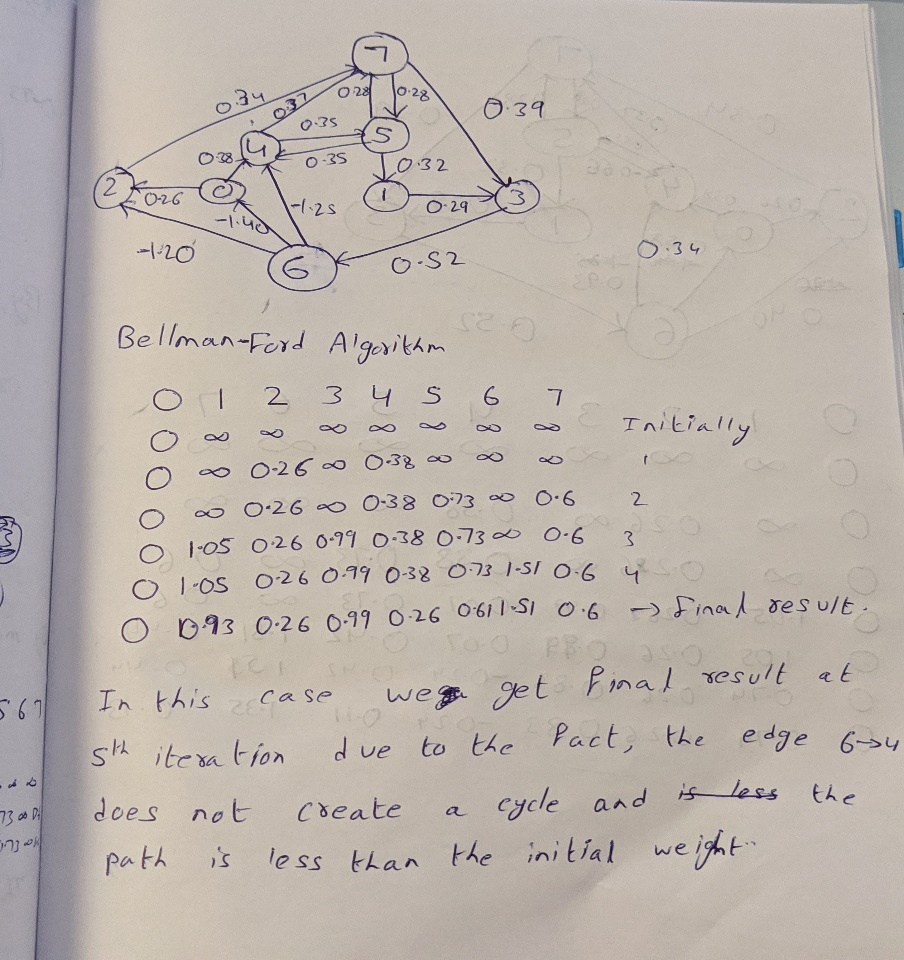 7
0.34
0.37
0.28
0.28
0.39
0.35
4
5
0.38
0.35
0.32
2
0.26
0
1
0.29
3
-1.25
-1.40
-1.20
6
0.52
0.34
Bellman-Ford Algorithm
0 1 2 3 4 5 6 7
0 ∞ ∞ ∞ ∞ ∞ ∞ ∞ Initially
0 ∞ 0.26 ∞ 0.38 ∞ ∞ ∞ 1
0 ∞ 0.26 ∞ 0.38 0.73 ∞ 0.6 2
0 1.05 0.26 0.99 0.38 0.73 ∞ 0.6 3
0 1.05 0.26 0.99 0.38 0.73 1.51 0.6 4
0 0.93 0.26 0.99 0.26 0.61 1.51 0.6 → final result.
In this case we get final result at
5th iteration due to the fact, the edge 6→4
does not create a cycle and is less the
path is less than the initial weight.
5 6 7